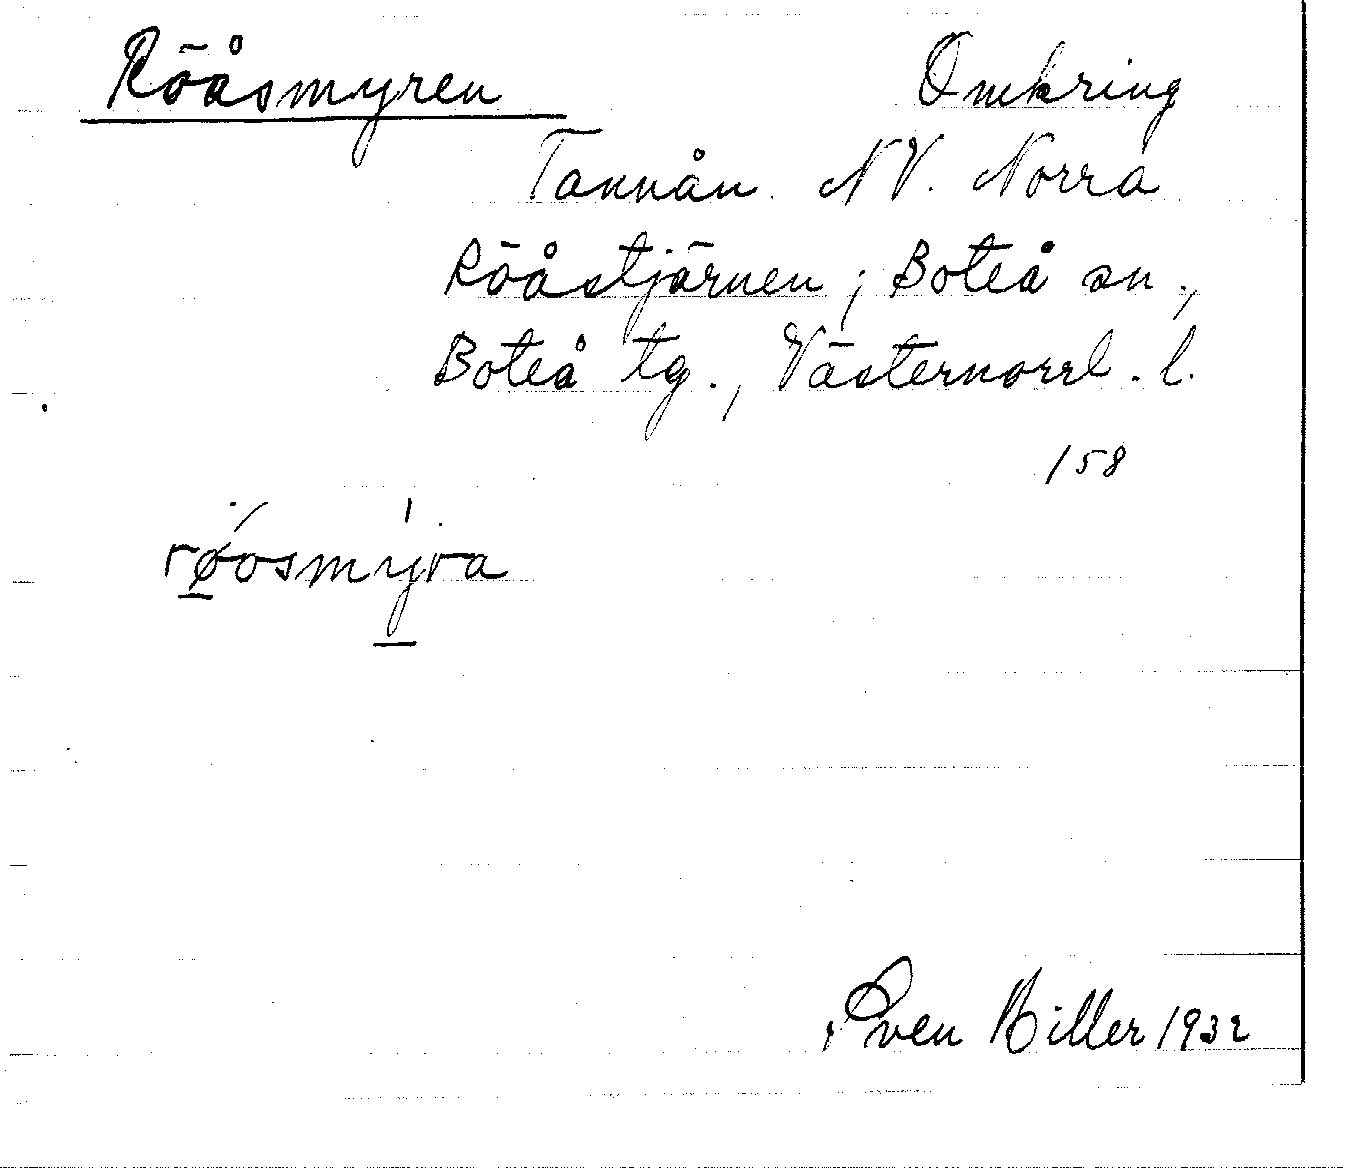 Rööåsmyren
Omkring
Tannån. NV. Norra
Rööåstjärnen; Boteå sn.,
Boteå tg., Västernorrl. l.
158
røosmyra
Sven Biller 1932